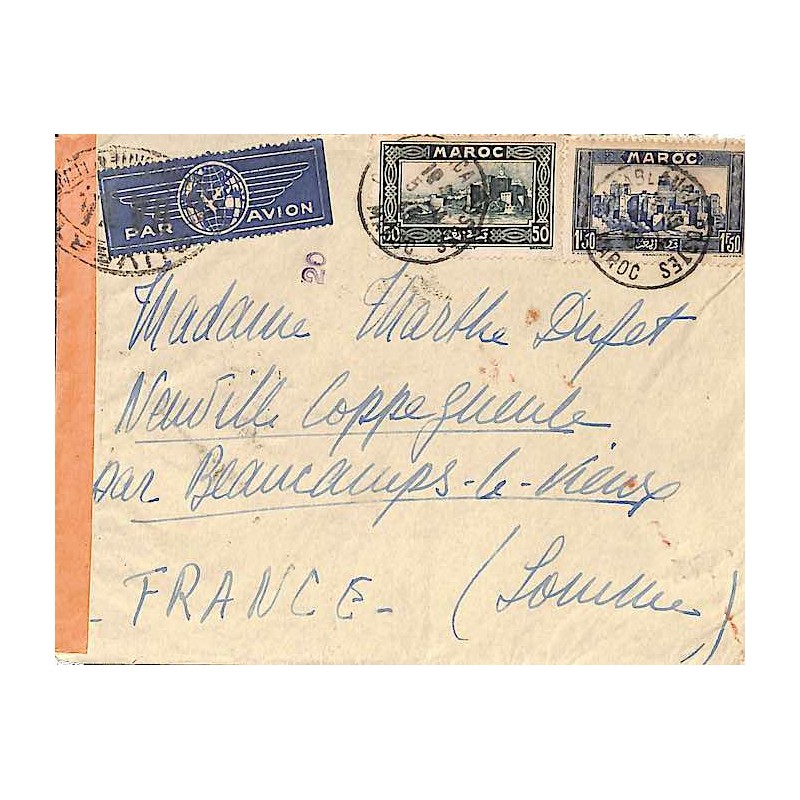 PAR AVION
MAROC
50
50
MAROC
1F50
1F50
CASABLANCA POSTES
MAROC
20
Madame Marthe Dufet
Neuville Coppegueule
par Beaucamps-le-Vieux
- FRANCE - (Somme)